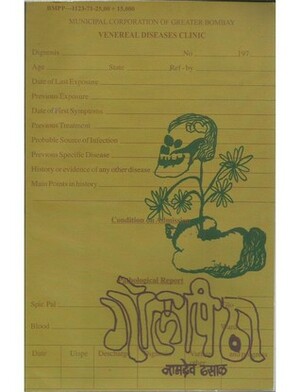 BMPP—1125-71-25,00 + 15,000
MUNICIPAL CORPORATION OF GREATER BOMBAY
VENEREAL DISEASES CLINIC
Diagnosis No. 197
Age State Ref-by
Date of Last Exposure
Previous Exposure
Date of First Symptoms
Previous Treatment
Probable Source of Infection
Previous Specific Disease
History or evidence of any other disease
Main Points in history
Condition on
Report
गोलपिठा
नामदेव ढसाळ
Blood
Date Urine Discharge